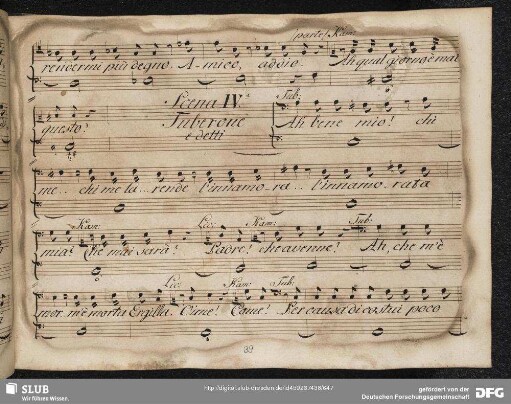 (parte) Kan:
rendermi più degno. A-mico, addio. Ah qual giorno è mai
Scena IV.ª Tub:
questo! Tuberone Ah bene mio! chi
e detti
me... chi me la... rende l'innamo-ra... l'innamo-rata
Kan: Lic: Kan: Tub:
mia? Che mai sarà? Padre! che avenne! Ah, che m'è
Lic: Kan: Tub:
mor.. m'è morta Ersilla. Oime! Come! Per causa di costui poco
89
SLUB
Wir führen Wissen.
http://digital.slub-dresden.de/
gefördert von der
Deutschen Forschungsgemeinschaft
DFG